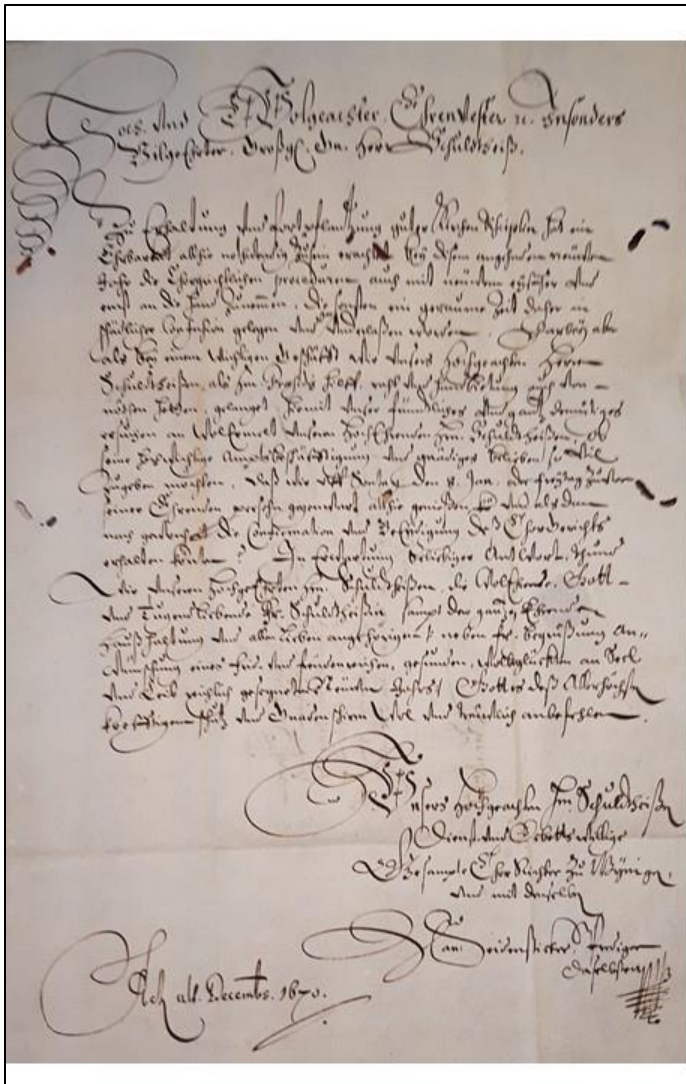 Hoch- und Wolgeachter, Ehrenvester u. Insonders
Vilgeehrter, Großg. Gn. Herr Schuldtheiß.
Zu Erhaltung und fortpflantzung guter Kirchen Disciplin hat ein
Ehrbarkeit alhie nohtwendig zusein erachtet bey disem angehenden neüwen
Jahr die Chorgrichtlichen proceduren auch mit neüwem eyffer und
ernst an die hand zunemmen, die sonsten ein geraume Zeit daher in
schädlicher Confusion gelegen und underlaßen worden. Darbey aber
als bey einem wichtigen Geschäfft wir unsers Hochgeachten Herren
Schuldtheißen, als hilff, raht und handbietung auch von-
nöhten hetten, gelanget hiemit unser fründtliches und gantz demütiges
ersuchen an unseren HochEhrenden Hrn. Schuldtheißen, Ob
seine Amptsbeschäfftigung und gnädiges belieben so vil
zugeben möchten, daß wir uff Sontag den 8. Jan. oder
seiner Ehrenden persohn gegenwart alhie und als dann
nach die Confirmation und Beeydigung deß Chorgerichts
erhalten könten? In Erwartung beliebiger Antwort, thund
wir unseren Hochgeehrten Hrn. Schuldtheißen, die Gott-
und Tugendliebende Fr. Schuldtheißin, sampt der gantzen Ehrenden
Haußhaltung und allen lieben angehörigen neben fr. begrüßung An-
wünschung eines frid- und freüdenreichen, gesunden, an Seel
und Leib reichlich gesegneten Neüwen Jahrs, Gottes deß Allerhöchsten
krefftigem schutz und Gnadenschirm wol und treüwlich anbefehlen.
Unsers Hochgeachten Hrn Schuldtheißen
Dienst- und Gebettswillige
Gesampte ChorRichter zu Wynigen,
und mit denselben
Predicant
daselbsten
Decembr. 1670.